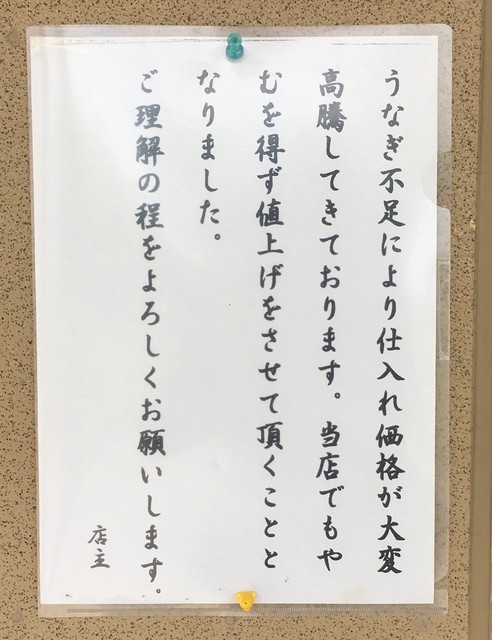 うなぎ不足により仕入れ価格が大変
高騰してきております。当店でもや
むを得ず値上げをさせて頂くことと
なりました。
ご理解の程をよろしくお願いします。
店主